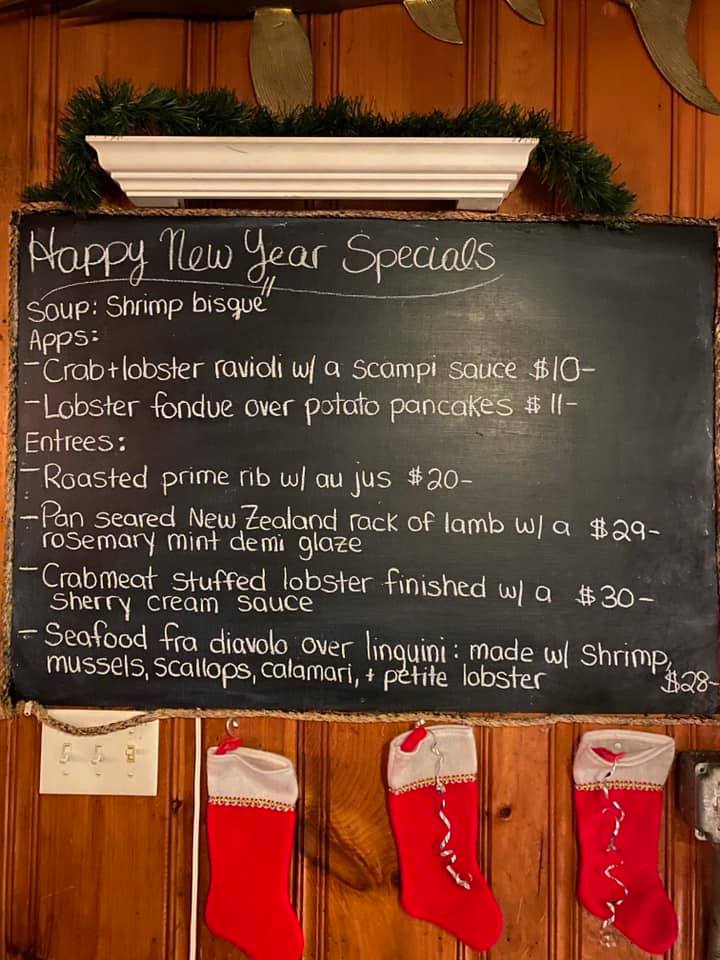 Happy New Year Specials
Soup: Shrimp bisque
Apps:
- Crab + lobster ravioli w/ a scampi sauce $10-
- Lobster fondue over potato pancakes $11-
Entrees:
- Roasted prime rib w/ au jus $20-
- Pan seared New Zealand rack of lamb w/ a $29-
rosemary mint demi glaze
- Crabmeat stuffed lobster finished w/ a $30-
sherry cream sauce
- Seafood fra diavolo over linguini: made w/ Shrimp,
mussels, scallops, calamari, + petite lobster $28-